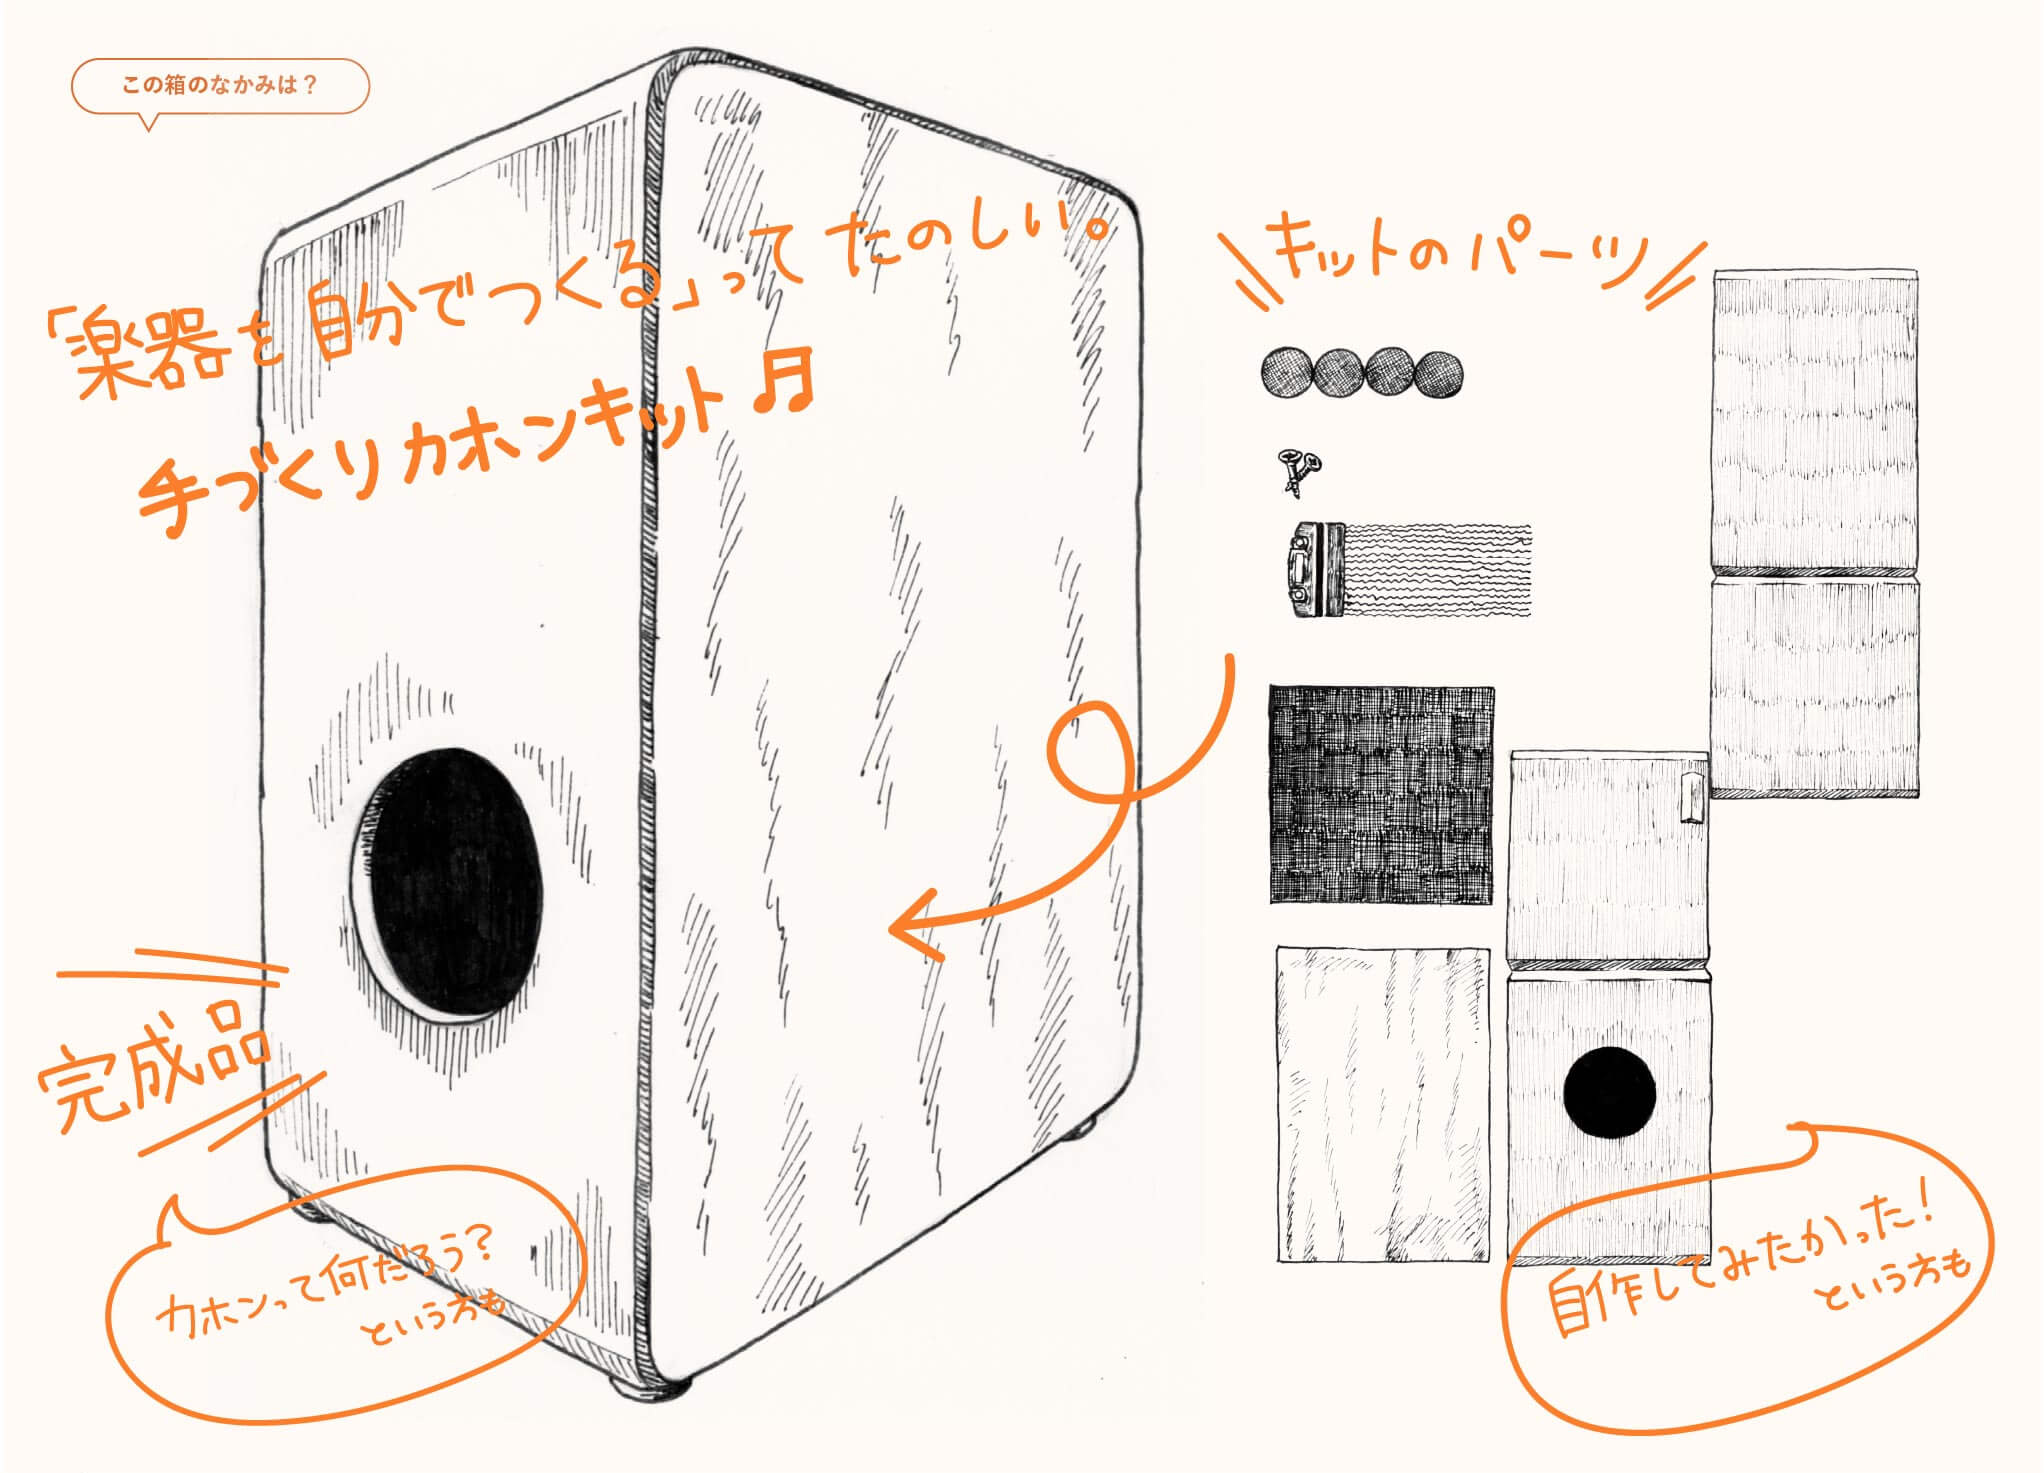 この箱のなかみは？
「楽器を自分でつくる」って たのしい。
手づくりカホンキット
キットのパーツ
完成品
カホンって何だろう？
という方も
自作してみたかった！
という方も